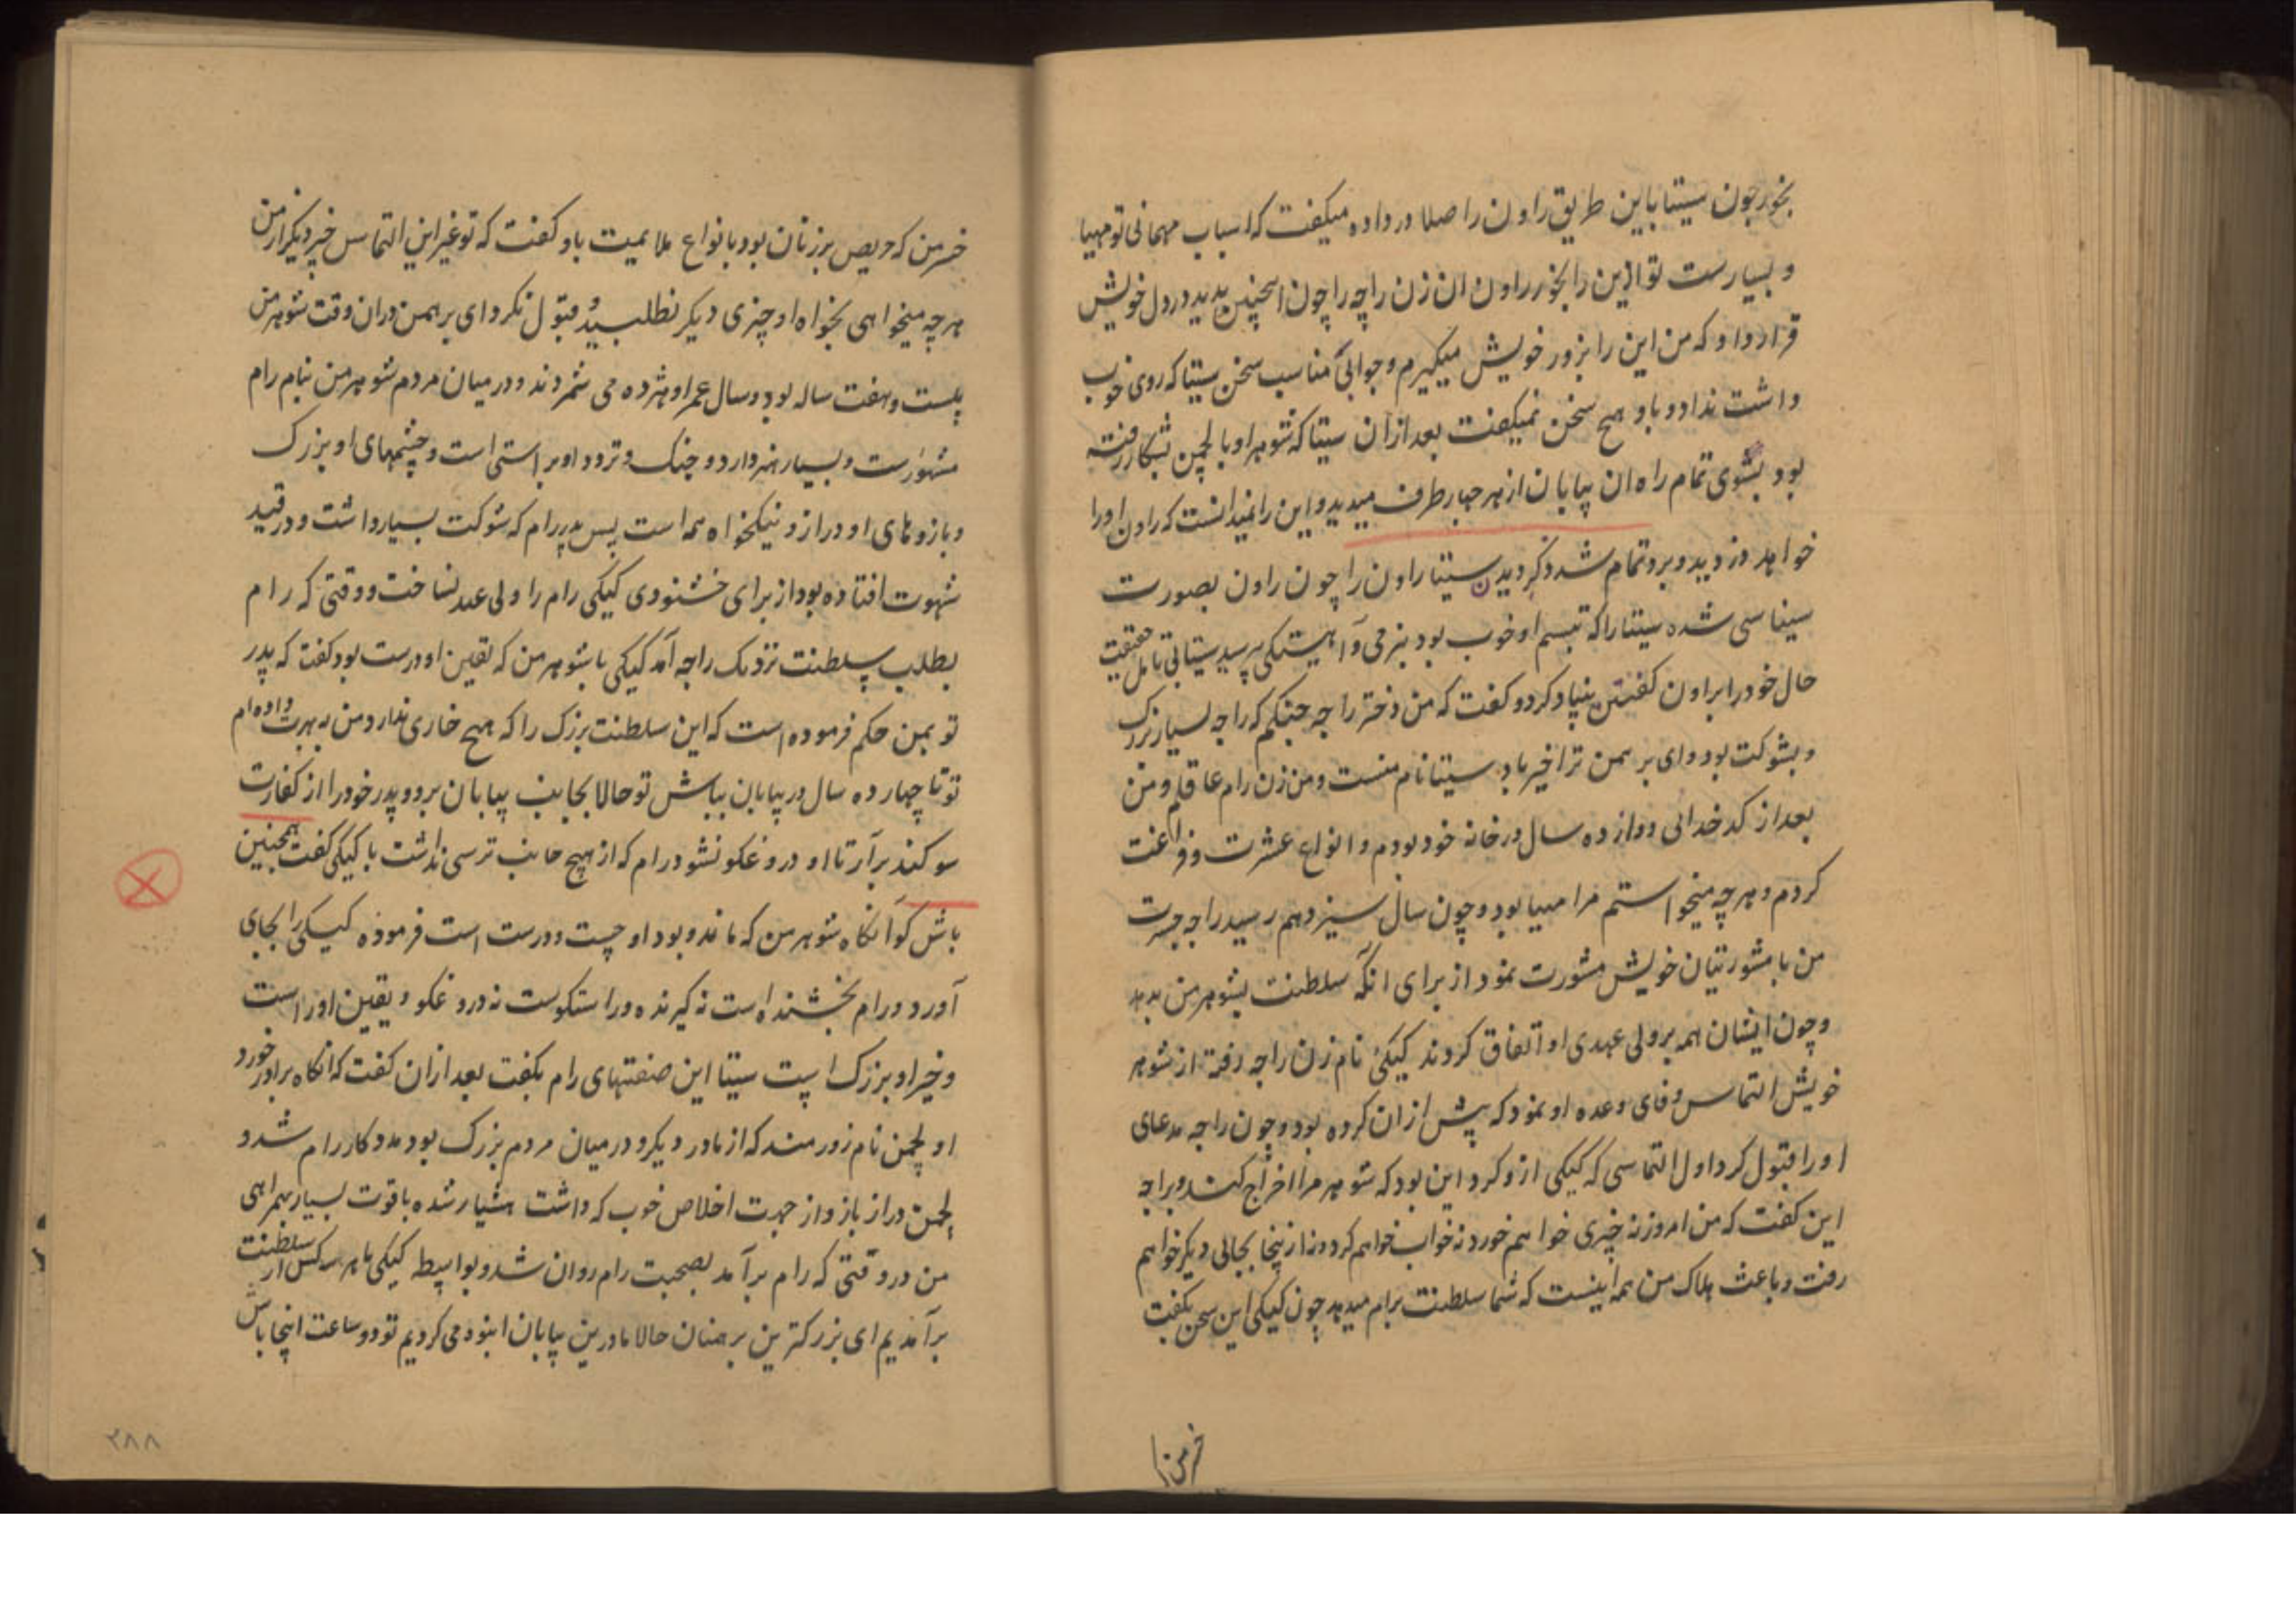 بخور چون سیتا باین طریق راون را صلا در داده میکفت که اسباب مهمانی تو مهیا
و بسیارست تو این را بخور راون ان زن راجه را چون اینچنین بدید در دل خویش
قرار داد که من این را بزور خویش میکیرم و جوابی مناسب سخن سیتا که روی خوب
داشت نداد و باو هیچ سخن نمیکفت بعد ازان سیتا که شوهر او با لچمن بشکار رفته
بود بسوی تمام راه ان بیابان از هر چهار طرف میدید و این را نمیدانست که راون اورا
خواهد دزدید و برد تمام شد ذکر دیدن سیتا راون را چون راون بصورت
سیناسی شده سیتا را که تبسم او خوب بود بنرمی و آهستکی پرسید سیتا بی تامل حقیقت
حال خود را براون کفتن بنیاد کرد و کفت که من دختر راجه جنکم که راجه بسیار بزرک
و بشوکت بود و ای برهمن ترا خیر باد سیتا نام منست و من زن رام عاقلم و من
بعد از کدخدائی دوازده سال در خانه خود بودم و انواع عشرت و فراغت
کردم و هر چه میخواستم مرا مهیا بود و چون سال سیزدهم رسید راجه جسرت
من با مشورتیان خویش مشورت نمود از برای انکه سلطنت بشوهر من بدهد
و چون ایشان همه بر ولی عهدی او اتفاق کردند کیکئ نام زن راجه رفته از شوهر
خویش التماس وفای وعده او نمود که پیش ازان کرده بود و چون راجه مدعای
اورا قبول کرد اول التماسی که کیکی ازو کرد این بود که شوهر مرا اخراج کند و براجه
این کفت که من امروز نه چیزی خواهم خورد نه خواب خواهم کرد و نه ازینجا بجائی دیکر خواهم
رفت و باعث هلاک من همه اینست که شما سلطنت برام میدهد چون کیکی این سخن بکفت
خسر من که حریص بر زنان بود بانواع ملایمیت باو کفت که تو غیر این التماس خیر دیکر از من
هر چه میخواهی بخواه او چیزی دیکر نطلبید و قبول نکرد ای برهمن دران وقت شوهر من
بیست و هفت ساله بود و سال عمر او هژده می شمردند و در میان مردم شوهر من بنام رام
مشهورست و بسیار هنر دارد و جنک و تردد او براستی است و چشمهای او بزرک
و بازوهای او دراز و نیکخواه همه است پس پدر رام که شوکت بسیار داشت و در قید
شهوت افتاده بود از برای خشنودی کیکی رام را ولی عهد نساخت و وقتی که رام
بطلب سلطنت نزدیک راجه آمد کیکی با شوهر من که یقین او درست بود کفت که پدر
تو بمن حکم فرموده است که این سلطنت بزرک را که هیچ خاری ندارد من به بهرت داده ام
تو تا چهارده سال در بیابان بباش تو حالا بجانب بیابان برو و پدر خود را از کفارت
سوکند برآر تا او دروغکو نشود رام که از هیچ جانب ترسی نداشت با کیکی کفت همچنین
باش کو آنکاه شوهر من که او چست و درست است فرموده کیکی را بجای
آورد و رام بخشنده است نه کیرنده و راستکوست نه دروغکو و یقین او راست
و خیر او بزرک است سیتا این صفتهای رام بکفت بعد ازان کفت که انکاه برادر خورد
او لچمن نام زورمند که از مادر دیکر و در میان مردم بزرک بود مددکار رام شد و
لچمن دراز بازو از جهت اخلاص خوب که داشت هشیار شده باقوت بسیار بهمراهی
من در وقتی که رام برآمد بصحبت رام روان شد و بواسطه کیکی ما هر سه کس از سلطنت
برآمدیم ای بزرکترین برهمنان حالا ما درین بیابان انبوه می کردیم تو دو ساعت اینجا باش
۲۸۸